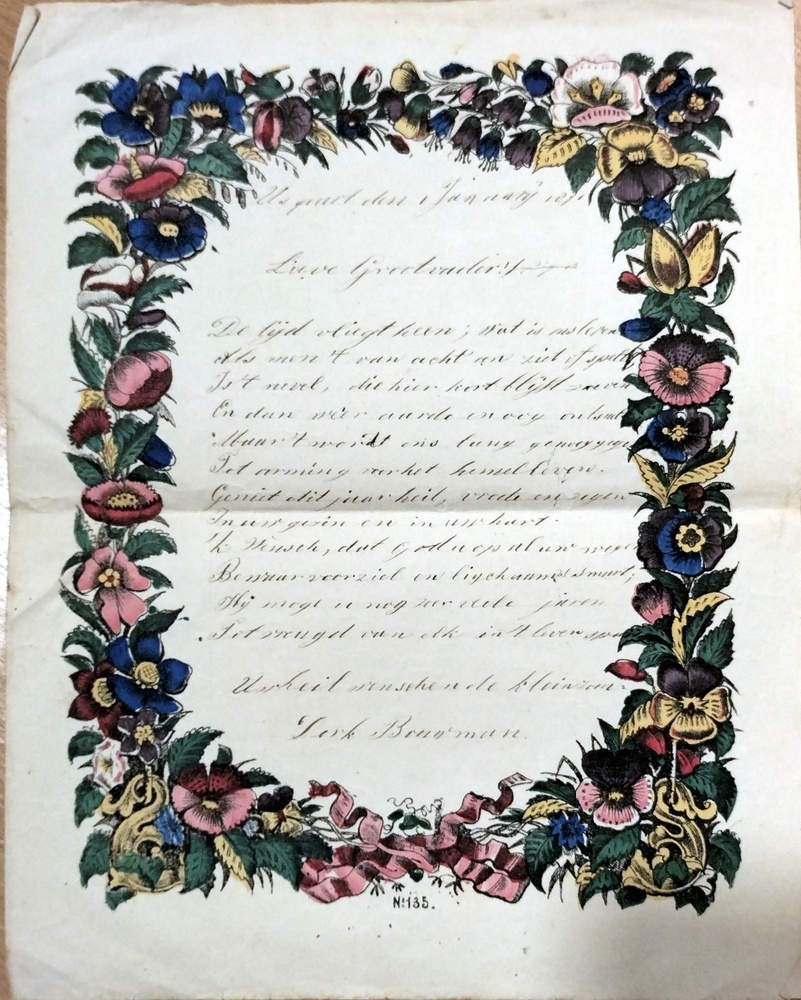 den 1 January
Lieve Grootvader!
De tijd vliegt heen; wat is ons leven
Als men 't van acht en ziet of
Is 't nevel, die hier kort blijft zweven
En dan weer aarde en oog
Maar 't wordt ons lang genoeg
Tot arming van het hemelleven.
Geniet dit jaar heil, vrede en zegen
In uw gezin en in uw hart.
'k Wensch, dat God u op al uw wegen
Bewaar voor ziel en ligchaams smart;
Hij moge u nog zeer vele jaren
Tot vreugd van elk in 't leven
Uw heil wenschende kleinzoon
Derk Bouwman.
No. 135.